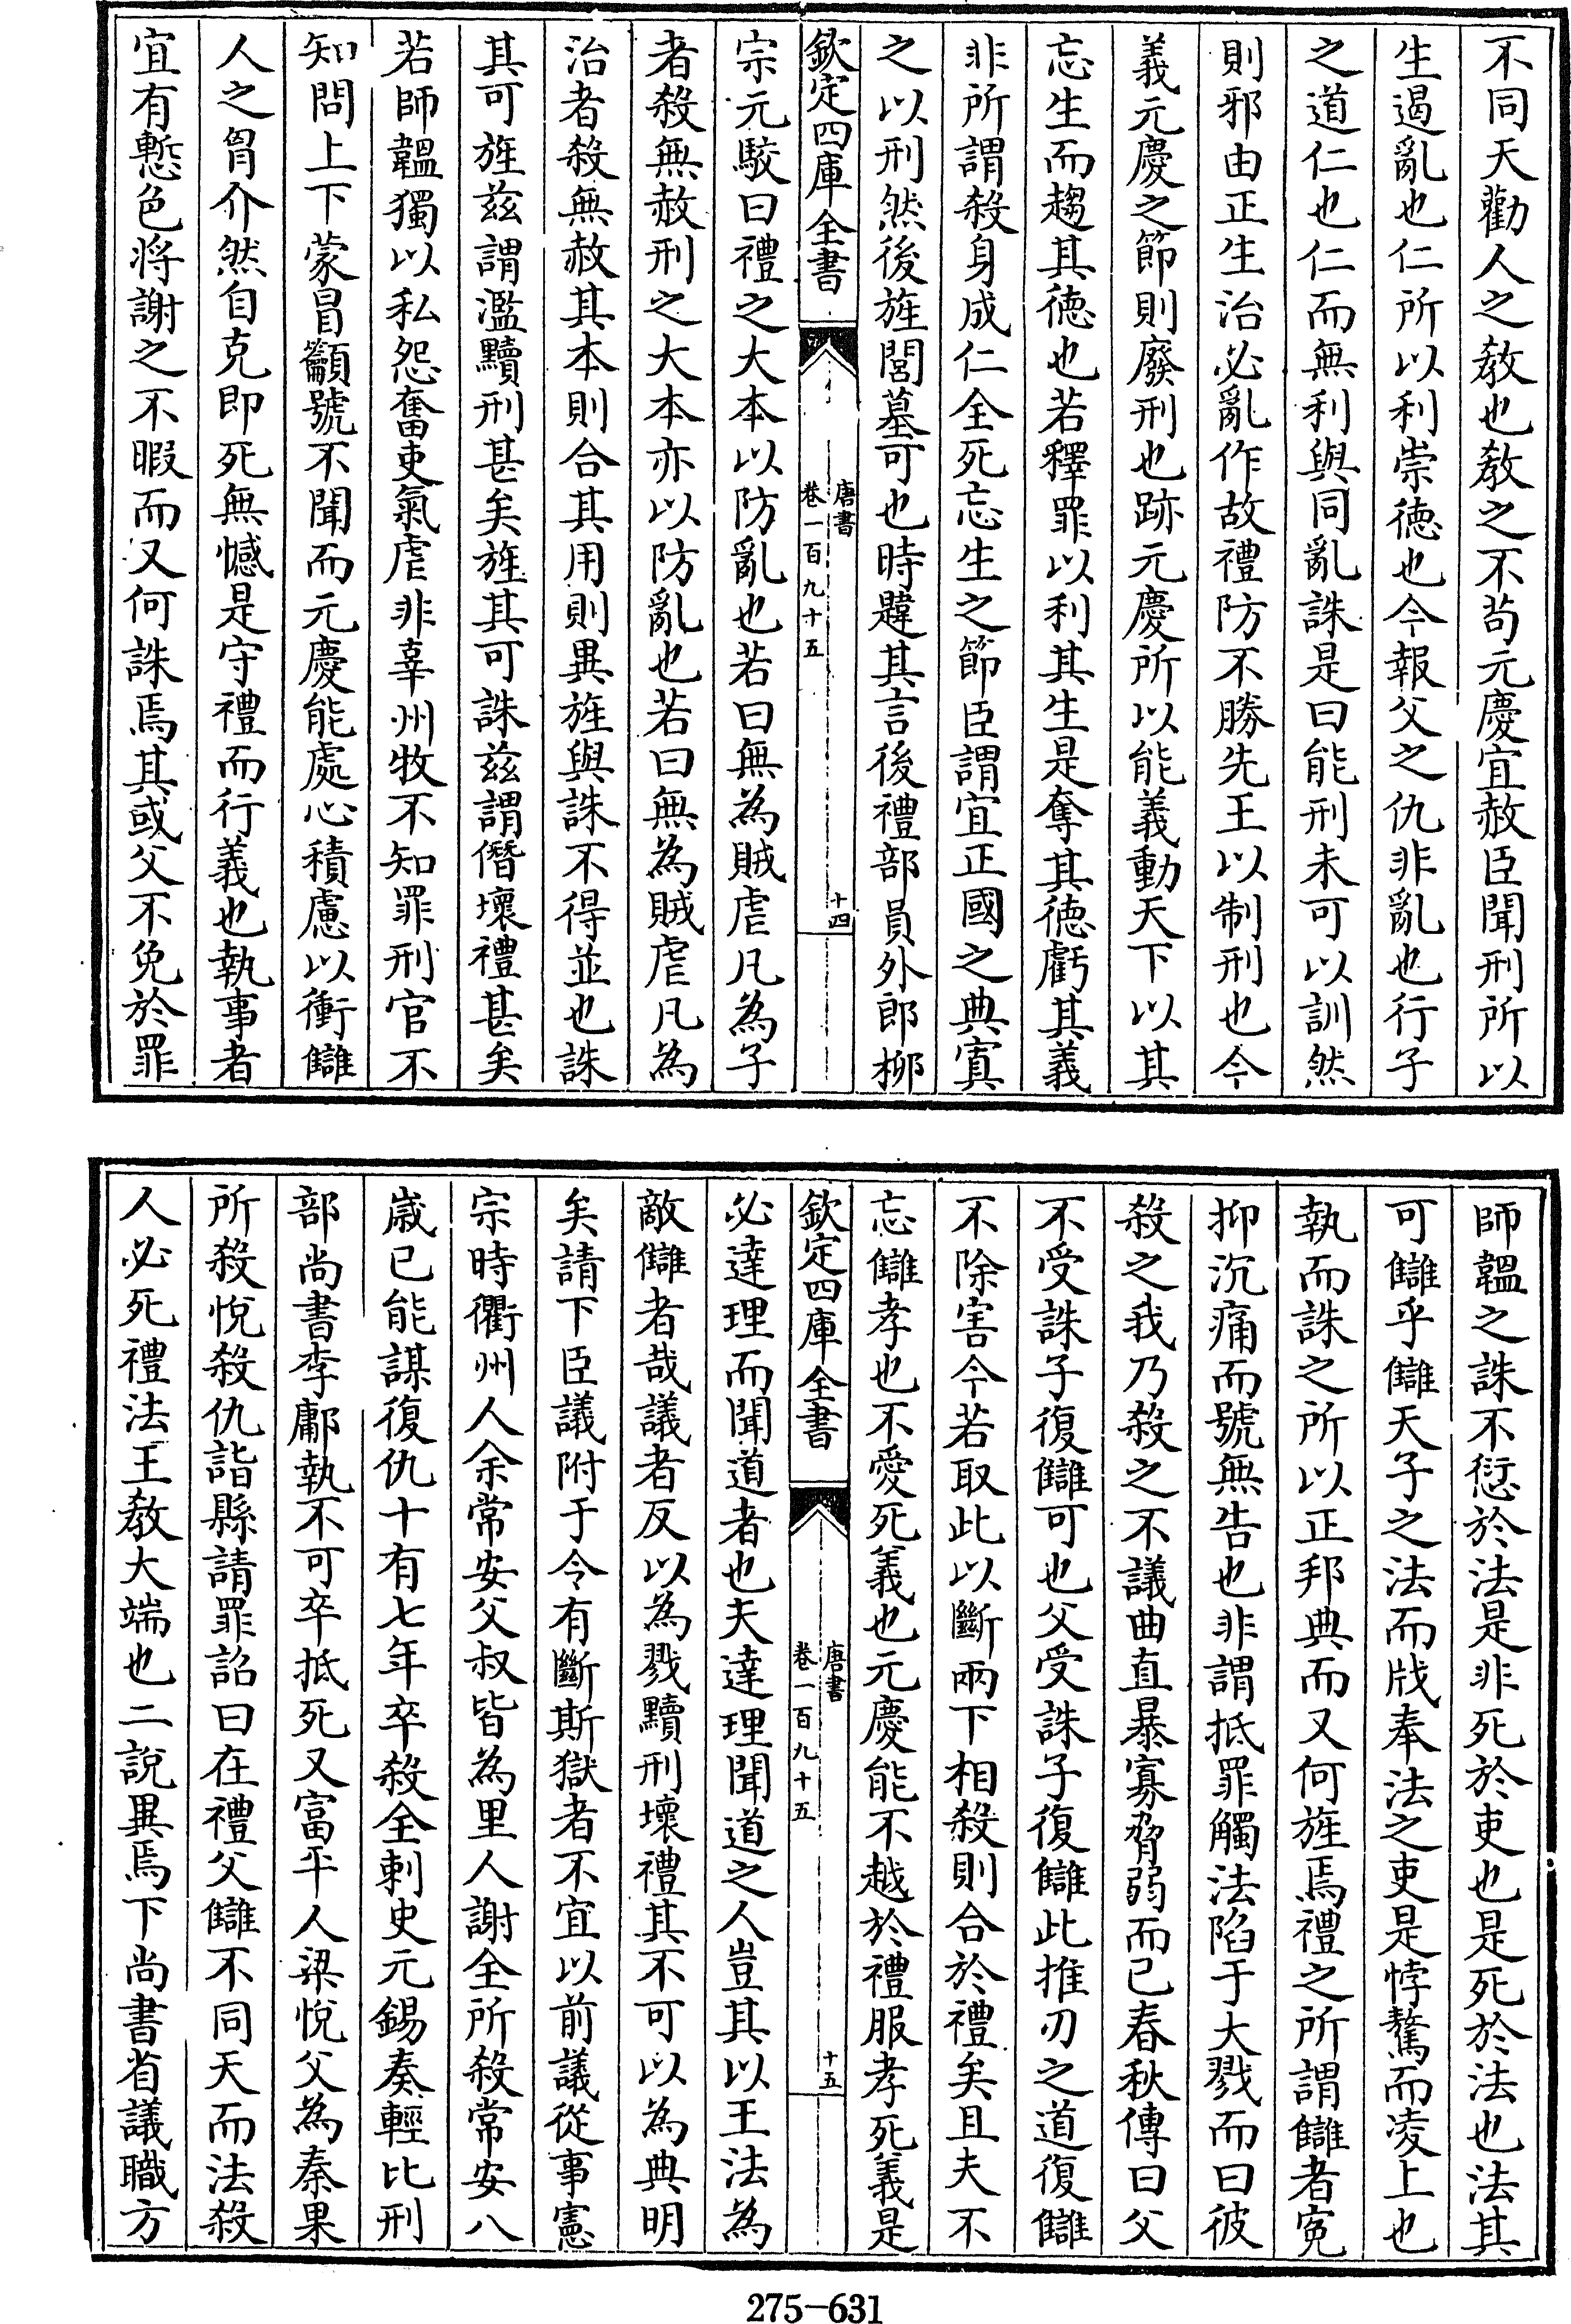 不同天勸人之教也教之不茍元慶宜赦臣聞刑所以
生遏亂也仁所以利崇德也今報父之仇非亂也行子
之道仁也仁而無利與同亂誅是曰能刑未可以訓然
則邪由正生治必亂作故禮防不勝先王以制刑也今
義元慶之節則廢刑也跡元慶所以能義動天下以其
忘生而趨其德也若釋罪以利其生是奪其德虧其義
非所謂殺身成仁全死忘生之節臣謂宜正國之典寘
之以刑然後旌閭墓可也時韙其言後禮部員外郎柳
欽定四庫全書
唐書
卷一百九十五
十四
宗元駮曰禮之大本以防亂也若曰無為賊虐凡為子
者殺無赦刑之大本亦以防亂也若曰無為賊虐凡為
治者殺無赦其本則合其用則異旌與誅不得並也誅
其可旌兹謂濫黷刑甚矣旌其可誅兹謂僭壞禮甚矣
若師韞獨以私怨奮吏氣虐非辜州牧不知罪刑官不
知問上下蒙冒籲號不聞而元慶能處心積慮以衝讎
人之胷介然自克即死無憾是守禮而行義也執事者
宜有慙色將謝之不暇而又何誅焉其或父不免於罪
師韞之誅不愆於法是非死於吏也是死於法也法其
可讎乎讎天子之法而戕奉法之吏是悖驁而凌上也
執而誅之所以正邦典而又何旌焉禮之所謂讎者寃
抑沉痛而號無告也非謂抵罪觸法陷于大戮而曰彼
殺之我乃殺之不議曲直暴寡脅弱而已春秋傳曰父
不受誅子復讎可也父受誅子復讎此推刃之道復讎
不除害今若取此以斷兩下相殺則合於禮矣且夫不
忘讎孝也不愛死義也元慶能不越於禮服孝死義是
欽定四庫全書
唐書
卷一百九十五
十五
必達理而聞道者也夫達理聞道之人豈其以王法為
敵讎者哉議者反以為戮黷刑壞禮其不可以為典明
矣請下臣議附于令有斷斯獄者不宜以前議從事憲
宗時衢州人余常安父叔皆為里人謝全所殺常安八
歲已能謀復仇十有七年卒殺全刺史元錫奏輕比刑
部尚書李鄘執不可卒抵死又富平人梁悅父為秦果
所殺悅殺仇詣縣請罪詔曰在禮父讎不同天而法殺
人必死禮法王教大端也二說異焉下尚書省議職方
275-631